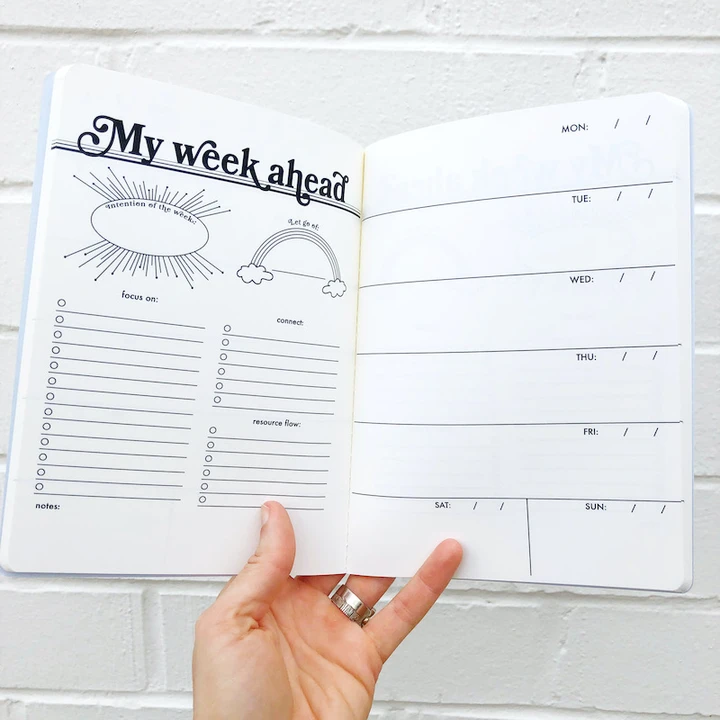 My week ahead
Intention of the week:
Let go of:
focus on:
connect:
resource flow:
notes:
MON: / /
TUE: / /
WED: / /
THU: / /
FRI: / /
SAT: / /
SUN: / /